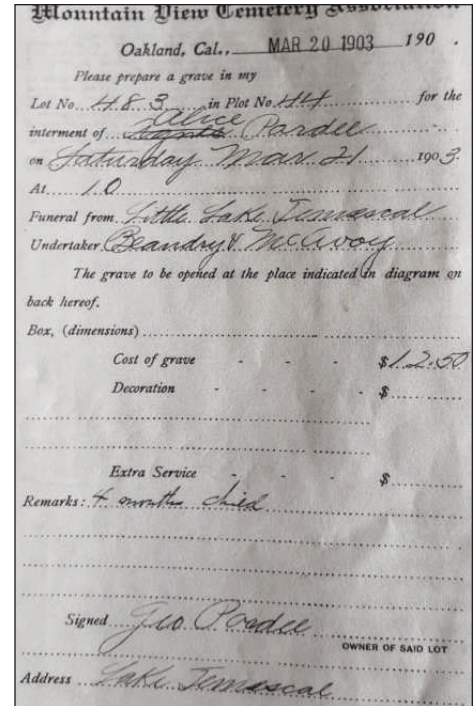 Mountain View Cemetery Association
Oakland, Cal., MAR 20 1903 190 .
Please prepare a grave in my
Lot No. 483 in Plot No. 44 for the
Alice
interment of Pardee
on Saturday Mar 21 1903.
At 10
Funeral from Little Lake Temescal
Undertaker Beaudry & McAvoy
The grave to be opened at the place indicated in diagram on
back hereof.
Box, (dimensions)
Cost of grave - - - $12.50
Decoration - - - - $
Extra Service - - - $
Remarks: 4 months child
Signed Geo Pardee
OWNER OF SAID LOT
Address Lake Temescal